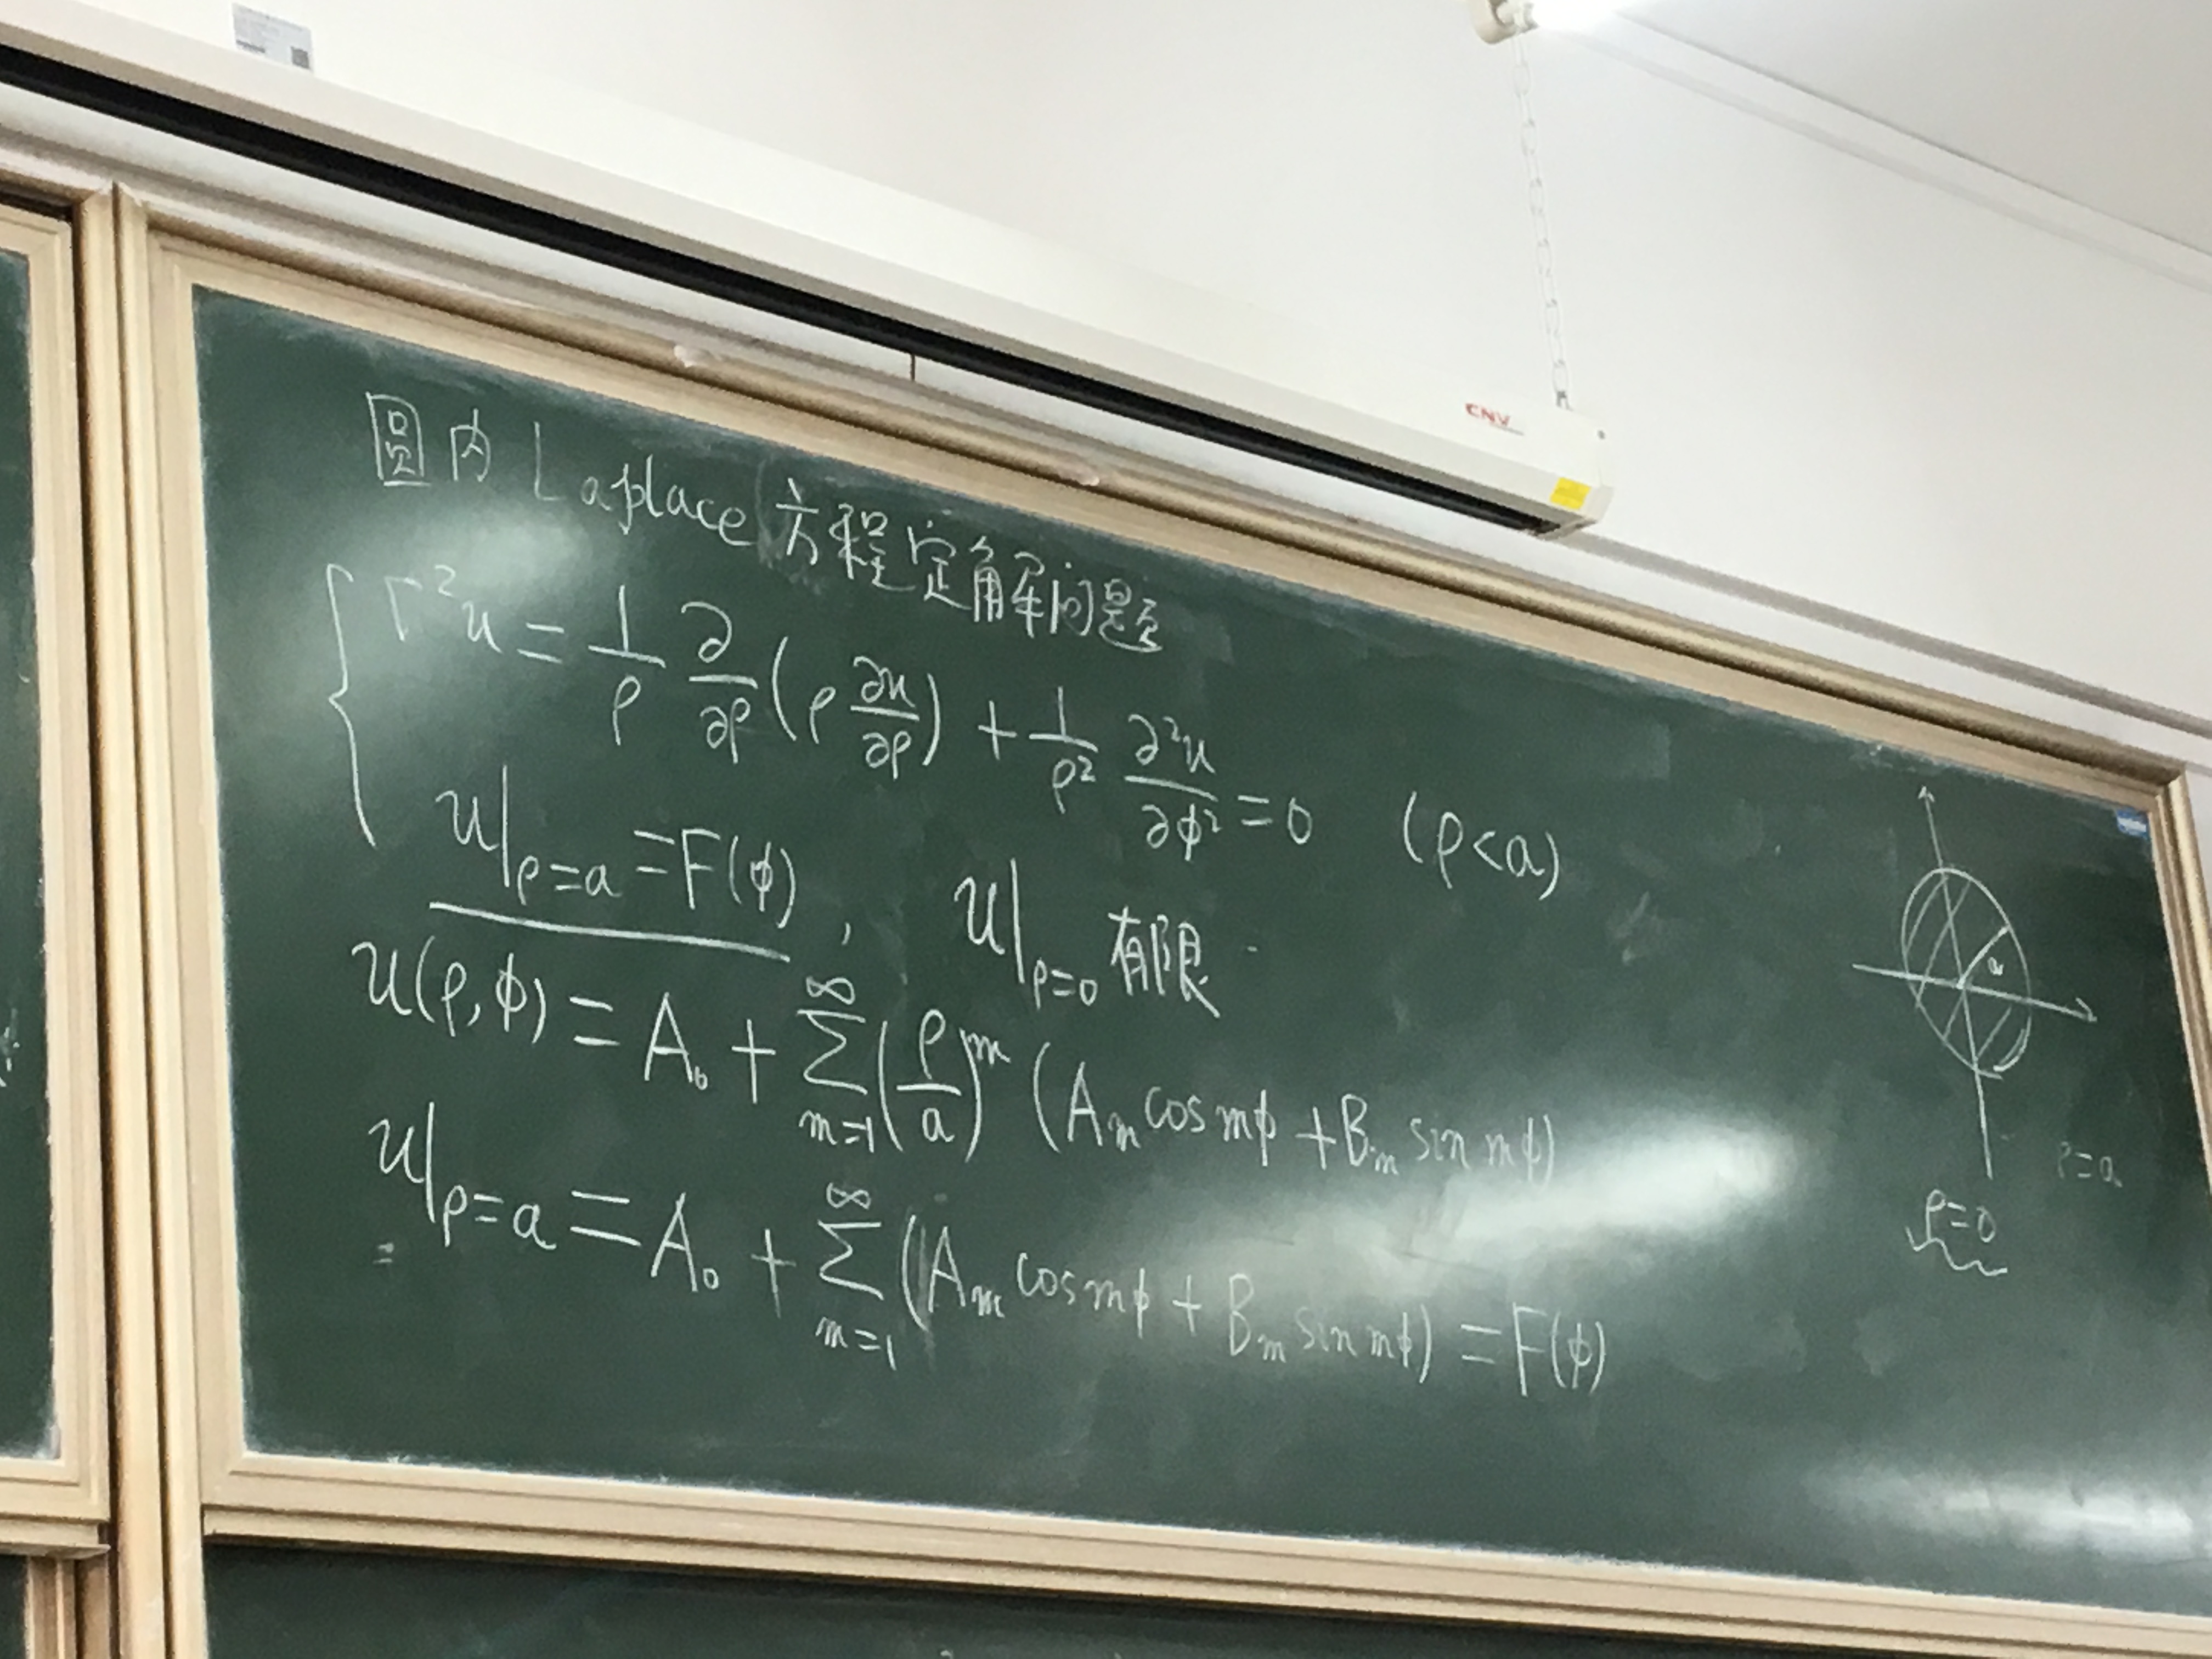 CNV
圆内Laplace方程定解问题
∇²u = 1/ρ ∂/∂ρ (ρ ∂u/∂ρ) + 1/ρ² ∂²u/∂φ² = 0 (ρ<a)
u|ρ=a = F(φ), u|ρ=0 有限
u(ρ,φ) = A₀ + ∑_{m=1}^{∞} (ρ/a)^m (A_m cos mφ + B_m sin mφ)
u|ρ=a = A₀ + ∑_{m=1}^{∞} (A_m cos mφ + B_m sin mφ) = F(φ)
a
ρ=a
ρ=0